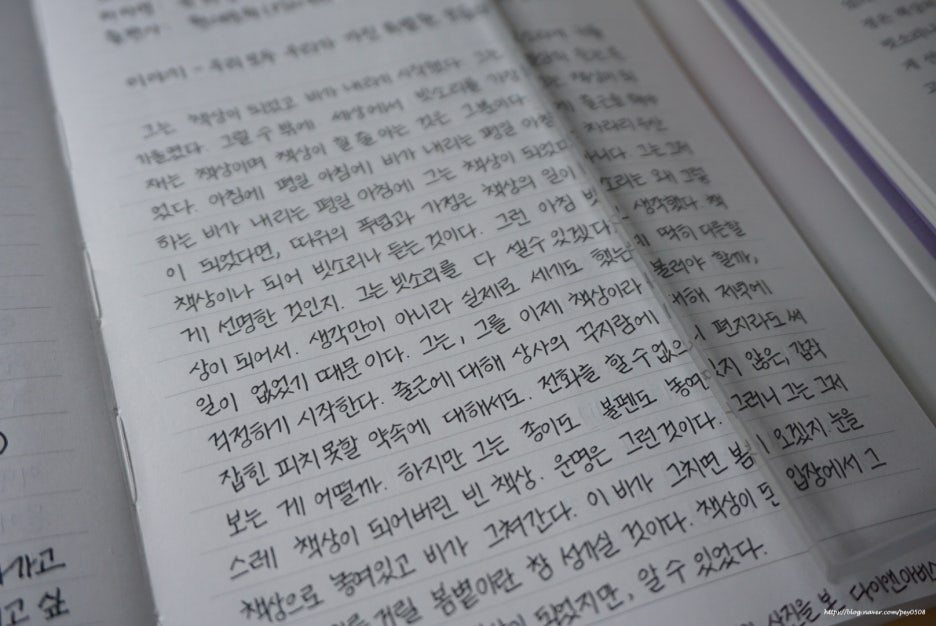 이야기 - 우리 모두 우리가 가진 특별한
그는 책상이 되었고 비가 내리기 시작했다. 그는
가늘었다. 그럴 수 밖에. 세상에서 빗소리를 가장
재는 책상이며 책상이 할 줄 아는 것은 그뿐이다. 책상이 되
었다. 아침에 평일 아침에 비가 내리는 평일 아침 출근을 해야
하는 비가 내리는 평일 아침에 그는 책상이 되었다. 차라리 우산
이 되었다면, 따위의 푸념과 가정은 책상의 일이 아니다. 그는 그저
책상이나 되어 빗소리나 듣는 것이다. 그런 아침 빗소리는 왜 그렇
게 선명한 것인지. 그는 빗소리를 다 셀수 있겠다고 생각했다. 책
상이 되어서. 생각만이 아니라 실제로 세기도 했는데 딱히 다른할
일이 없었기 때문이다. 그는, 그를 이제 책상이라 불러야 할까,
걱정하기 시작한다. 출근에 대해 상사의 꾸지람에 대해 저녁에
잡힌 피치 못할 약속에 대해서도. 전화를 할 수 없으니 편지라도 써
보는 게 어떨까. 하지만 그는 종이도 볼펜도 놓여있지 않은, 갑작
스레 책상이 되어버린 빈 책상. 운명은 그런 것이다. 그러니 그는 그저
책상으로 놓여있고 비가 그쳐간다. 이 비가 그치면 봄이 오겠지. 눈을
거릴 봄볕이란 참 성가실 것이다. 책상이 된 입장에서 그
이 되었지만, 알 수 있었다.
http://blog.naver.com/pey0508